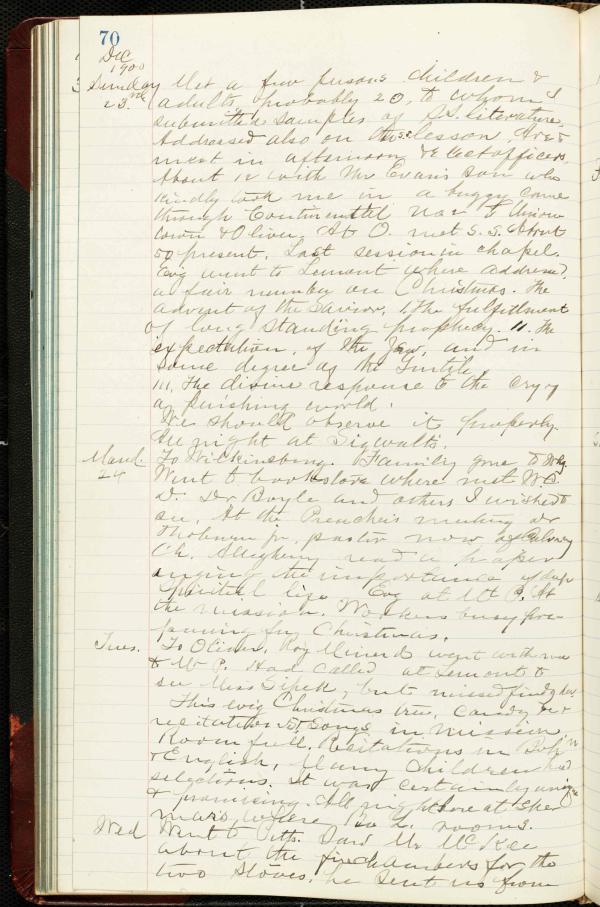 70
Dec
1900
Sunday Met a few persons children &
23rd adults, probably 20, to whom I
submitted samples of S.S. literature.
Addressed also on the S.S. lesson,
meet in afternoon & elect officers.
About 12 with Mr Evans son who
kindly took me in a buggy came
through Continental No 2 to Union
town & Oliver. At O. met S.S. About
50 present. Last session in chapel.
Evg went to Lemont where addressed
a fair number on Christmas. The
advent of the Savior, 1, The fulfillment
of long standing prophecy. 11. The
expectation, of the Jew, and in
some degree of the Gentile,
111, The divine response to the cry of
a perishing world.
We should observe it properly.
The night at Sigwalts.
Mond. To Wilkinsburg. Family gone to
24 Went to bookstore where met W.
D. Dr Boyle and others I wished to
see, At the Preachers meeting Dr
Thoburn jr. pastor now of Calvary
Ch. Allegheny read a paper
urging the importance of deep
spiritual life. Evg at Mt P. At
the mission. Workers busy pre
paring for Christmas.
Tues. To Oliver, Roy Minerd went with me
to Mt P. Had called at Lemont to
see Miss Sipek, but missed finding her
This evg Christmas tree, candy &
recitations & songs in mission
Room full. Recitations in Boh'n
& English, Many children had
selections. It was certainly unique
& promising. All night here at Sher
mans, where rooms.
Wed Went to Pitts. Saw Mr McKee
about the fire chambers for the
two stoves. he sent us from